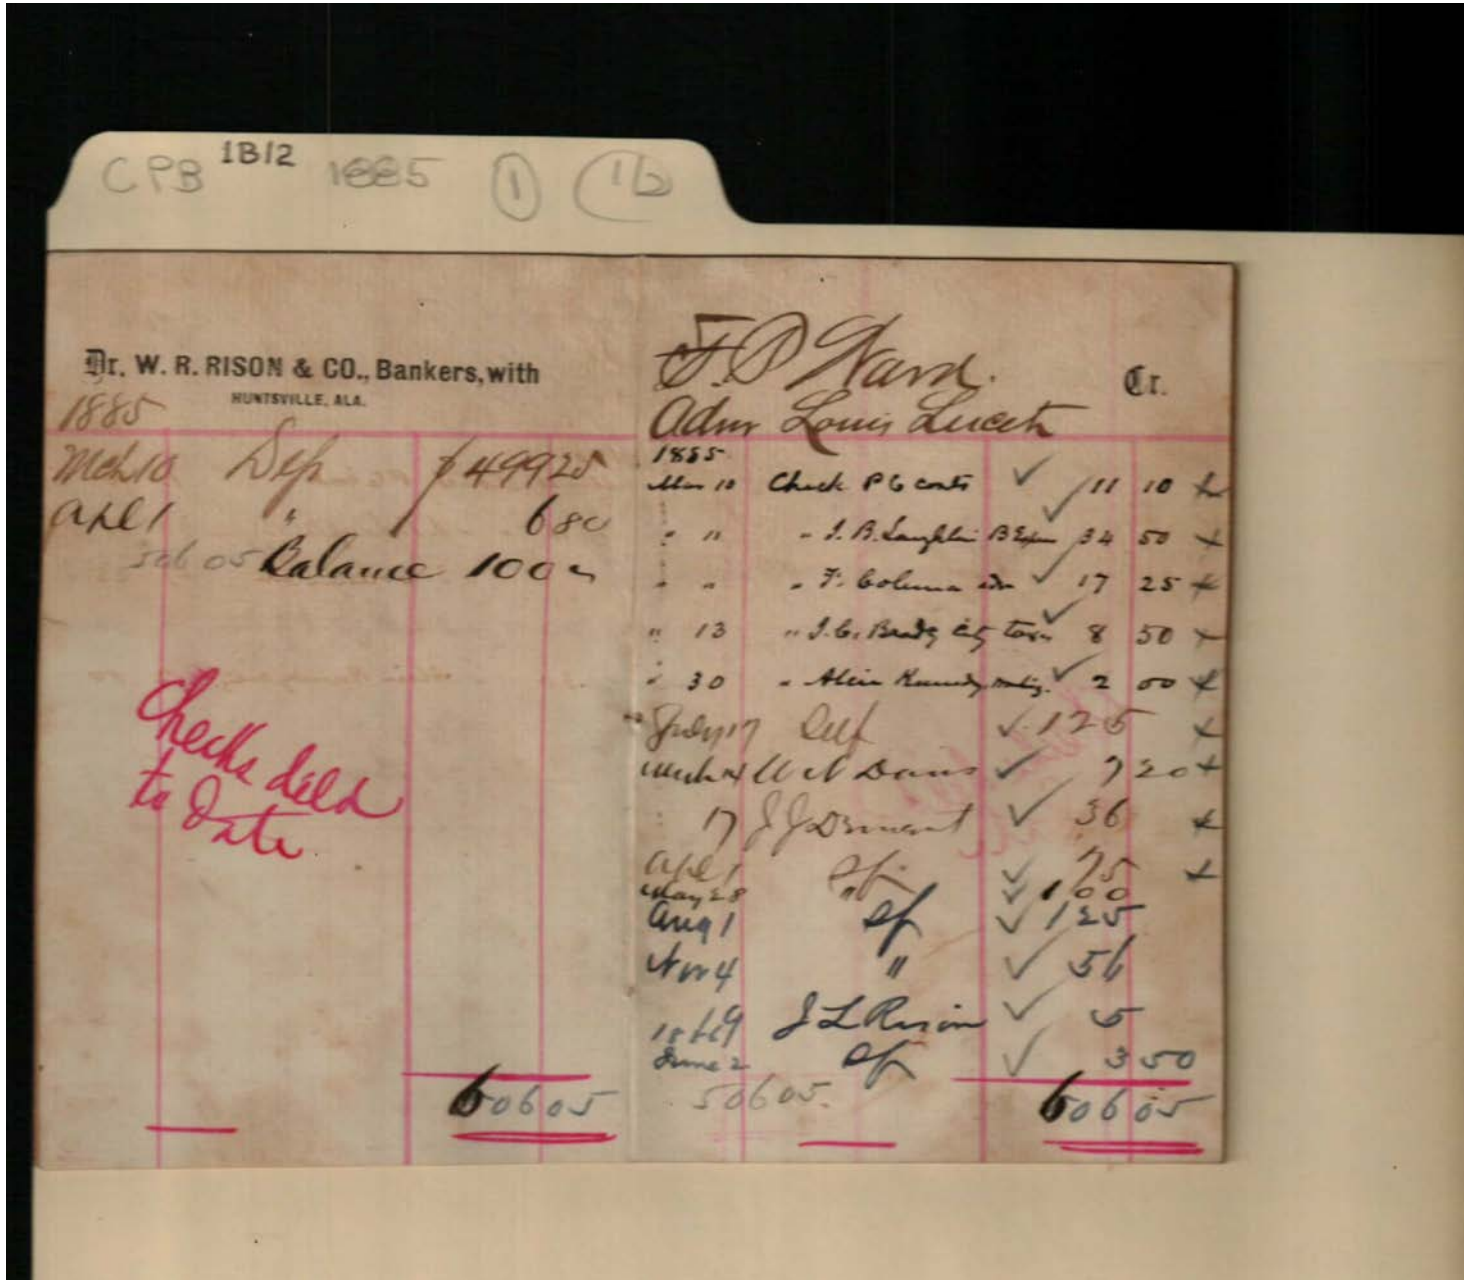 CPB 1B12 1885 1 1b
Dr. W. R. RISON & CO., Bankers, with
HUNTSVILLE, ALA.
1885
Mch 10 Dep $ 499 25
Apl 1 " 6 80
506 05 Balance 100 "
Checks deld
to Date
606 05
P Ward. Cr.
Admr Louis
1885
Mar 10 Check P C costs ✓ 11 10
" " " J. B. Laughlin ✓ 34 50
" " " F. Coleman adm ✓ 17 25
" 13 " J. C. Brady City Taxes ✓ 8 50
" 30 " Kennedy ✓ 2 00
17 Self ✓ 125
W N Davis ✓ 7 20
17 J J Dement ✓ 36
Apl 1 ✓ 75
May 28 " ✓ 100
Aug 1 ✓ 125
Nov 4 " ✓ 56
9 J L Rison ✓ 5
June 2 ✓ 3 50
506 05. 606 05